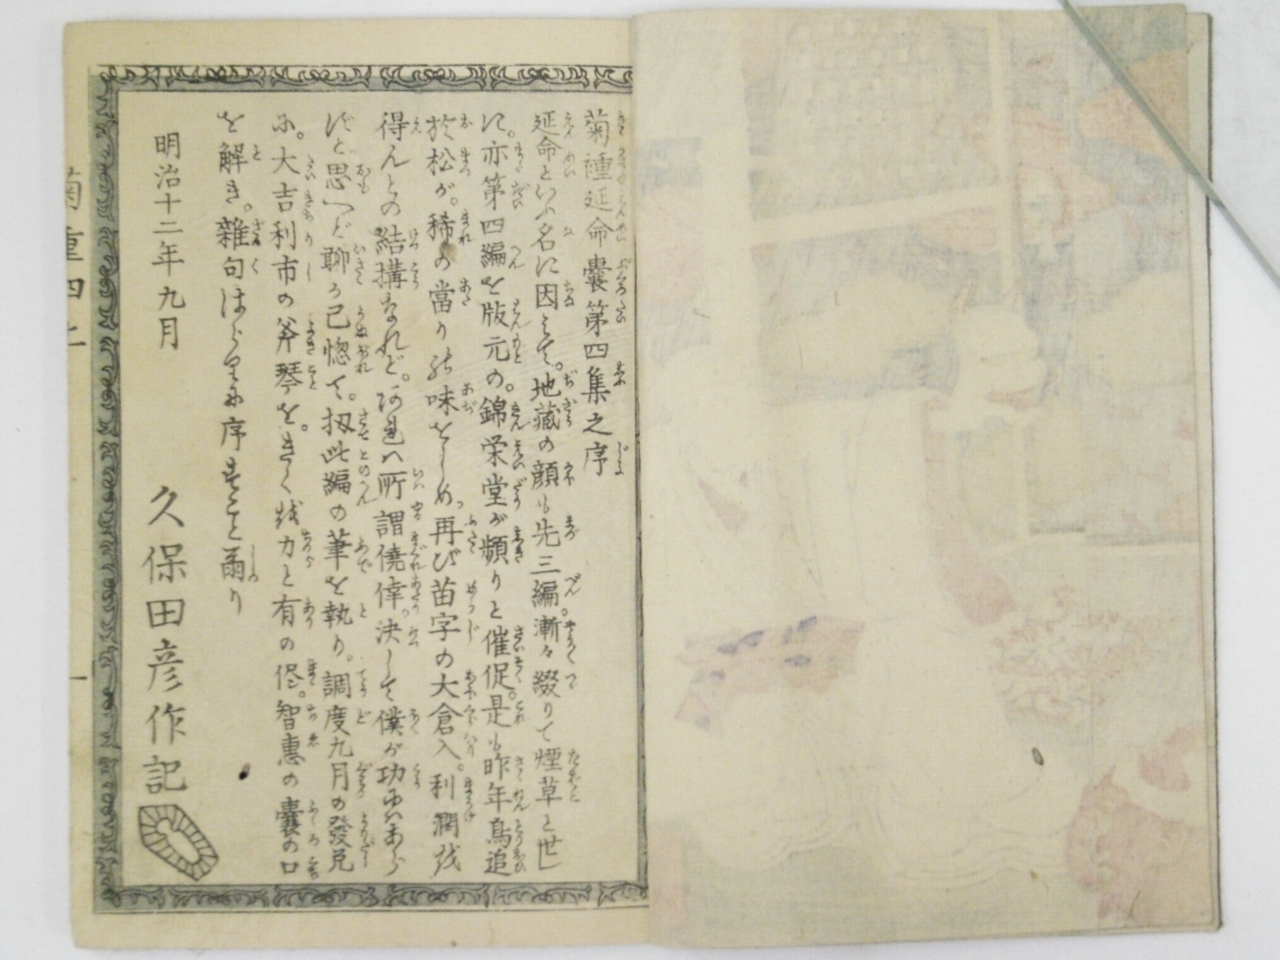 菊種延命嚢第四集之序
延命といふ名に因みて。地蔵の顔も先三編漸々綴りて煙草と世
に。亦第四編を版元の。錦栄堂が頻りと催促。是も昨年鳥追
於松が。稀の當り的味をしめ。再び苗字の大倉入。利潤を
得んとの結構なれど。河は所謂僥倖。決して僕が功にあら
じと思へど聊か己惚て。扨此編の筆を執り。調度九月の發兌
に。大吉利市の斧琴を。きく越力と有の侭。智惠の嚢の口
を解き。雜句ばらりに序すこと爾り
明治十二年九月
久保田彦作記
菊種四上
一